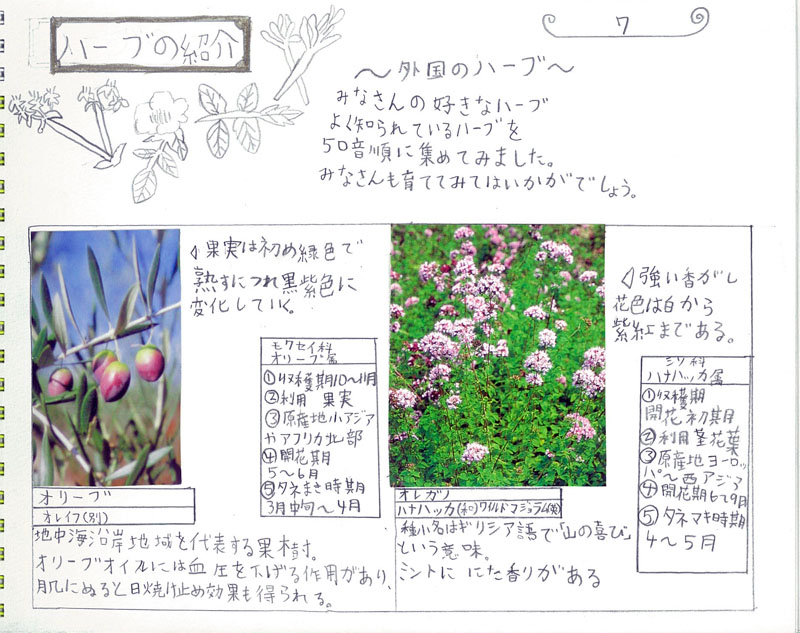 ハーブの紹介
7
～外国のハーブ～
みなさんの好きなハーブ
よく知られているハーブを
50音順に集めてみました。
みなさんも育ててみてはいかがでしょう。
果実は初め緑色で
熟すにつれ黒紫色に
変化していく。
モクセイ科
オリーブ属
①収穫期10～11月
②利用 果実
③原産地小アジア
やアフリカ北部
④開花期
5～6月
⑤タネまき時期
3月中旬～4月
オリーブ
オレイフ(別)
地中海沿岸地域を代表する果樹。
オリーブオイルには血圧を下げる作用があり、
肌にぬると日焼け止め効果も得られる。
強い香がし
花色は白から
紫紅まである。
シソ科
ハナハッカ属
①収穫期
開花初期
②利用茎花葉
③原産地ヨーロッ
パ～西アジア
④開花期6～9月
⑤タネマキ時期
4～5月
オレガノ
ハナハッカ(和)ワイルドマジョラム(英)
種小名はギリシア語で「山の喜び」
という意味。
ミントに にた香りがある